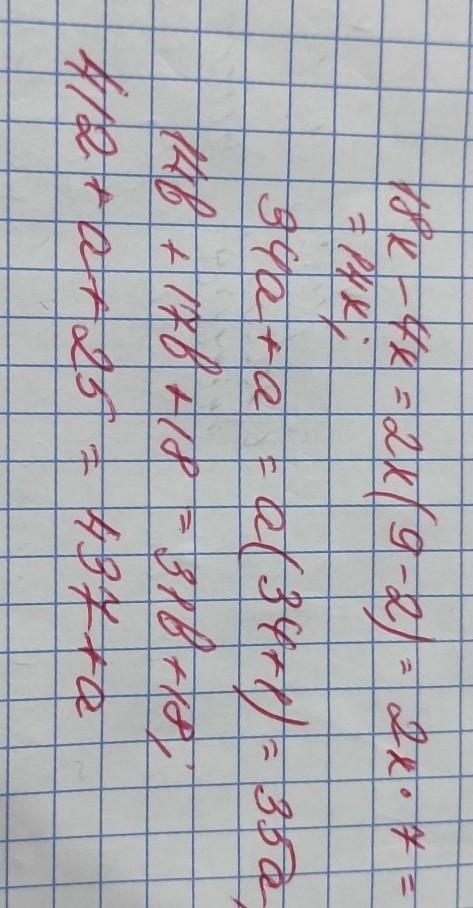 18x - 4x = 2x(9-2) = 2x · 7 =
= 14x;
34a + a = a(34+1) = 35a,
14b + 17b + 18 = 31b + 18;
412 + a + 25 = 437 + a